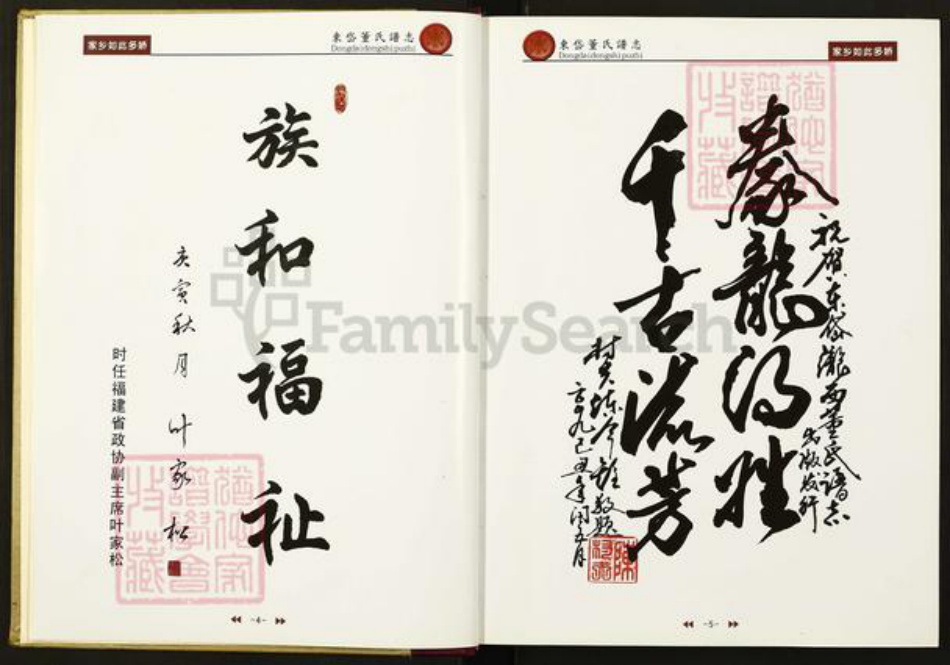 家乡如此多娇
東岱董氏譜志
Dongdaidongshipuzhi
族和福祉
庚寅秋月 叶家松
时任福建省政协副主席叶家松
-4-
東岱董氏譜志
Dongdaidongshipuzhi
家乡如此多娇
祝贺东岱瀧西董氏譜志
出版发行
豢龍得姓
千古流芳
己丑年闰五月
-5-
FamilySearch